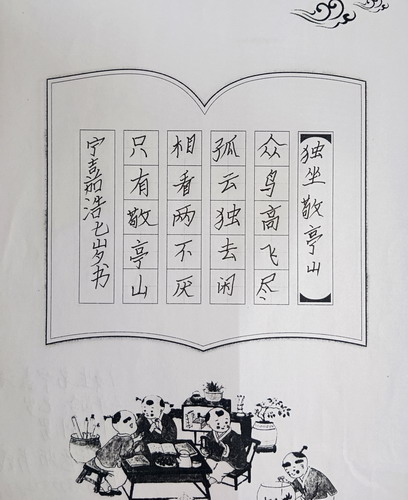 独坐敬亭山
众鸟高飞尽
孤云独去闲
相看两不厌
只有敬亭山
宁嘉浩七岁书